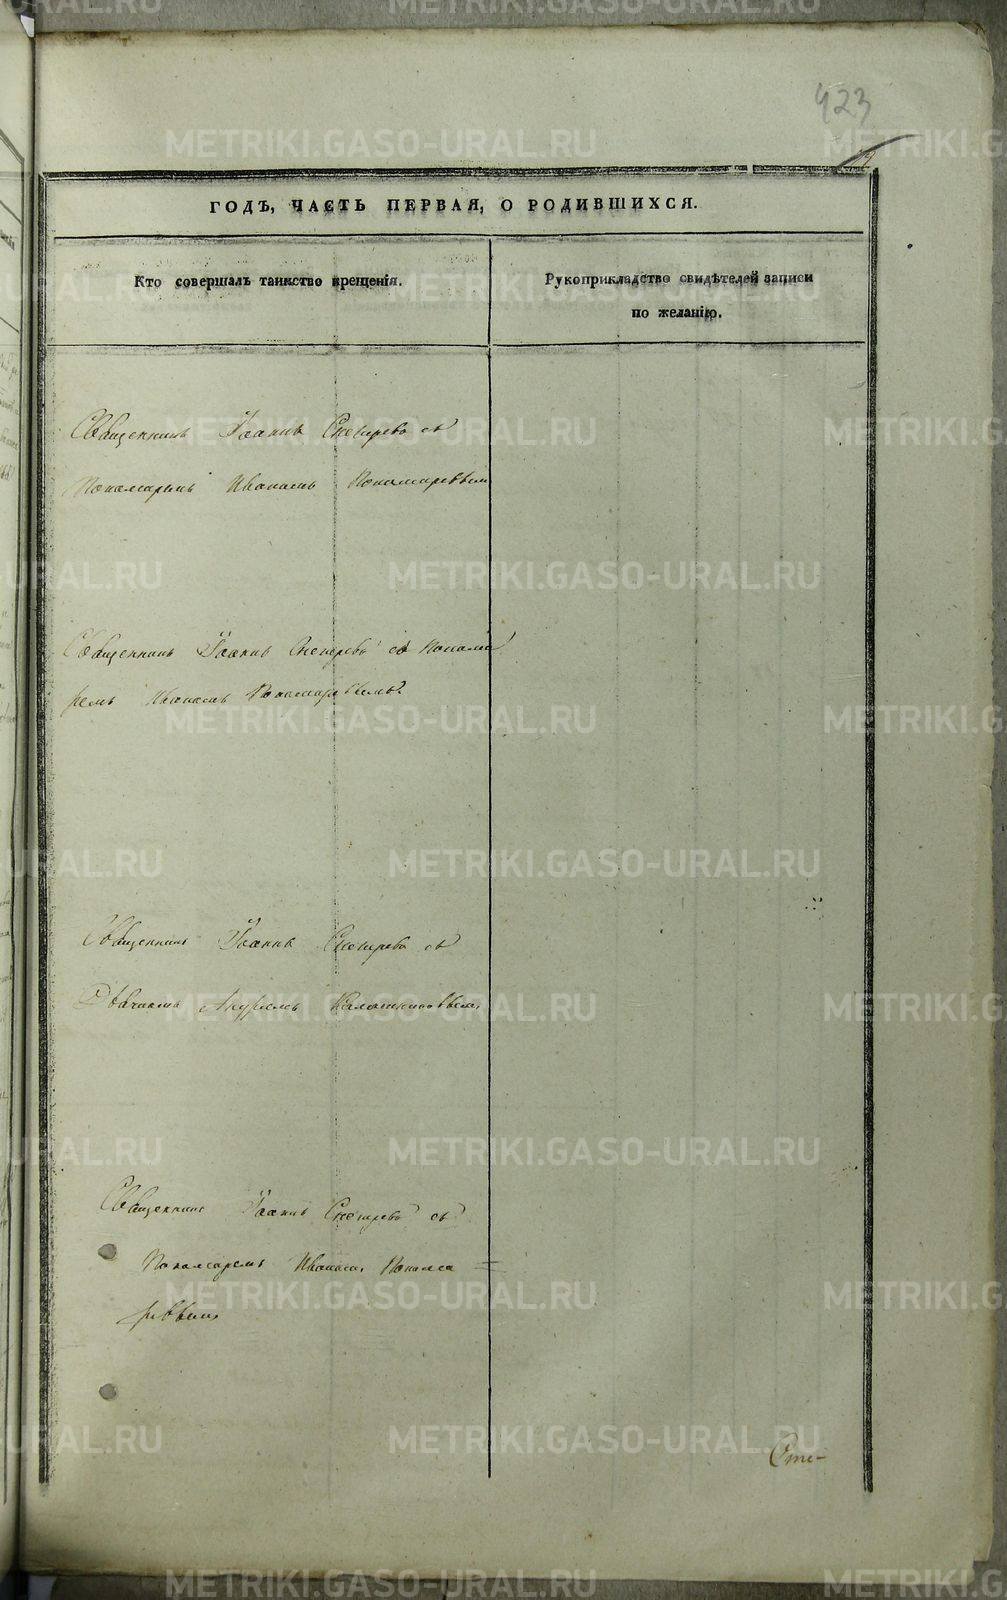 423
ГОДЪ, ЧАСТЬ ПЕРВАЯ, О РОДИВШИХСЯ.
Кто совершалъ таинство крещенія.
Рукоприкладство свидѣтелей записи
по желанію.
Священникъ Іоаннъ Снегиревъ съ
Пономаремъ Иваномъ Пономаревымъ
Священникъ Іоаннъ Снегиревъ съ Понома
ремъ Иваномъ Пономаревымъ.
Священникъ Іоаннъ Снегиревъ съ
Дьячкомъ Андреемъ
Священникъ Іоаннъ Снегиревъ съ
Пономаремъ Иваномъ Понома=
ревымъ
METRIKI.GASO-URAL.RU